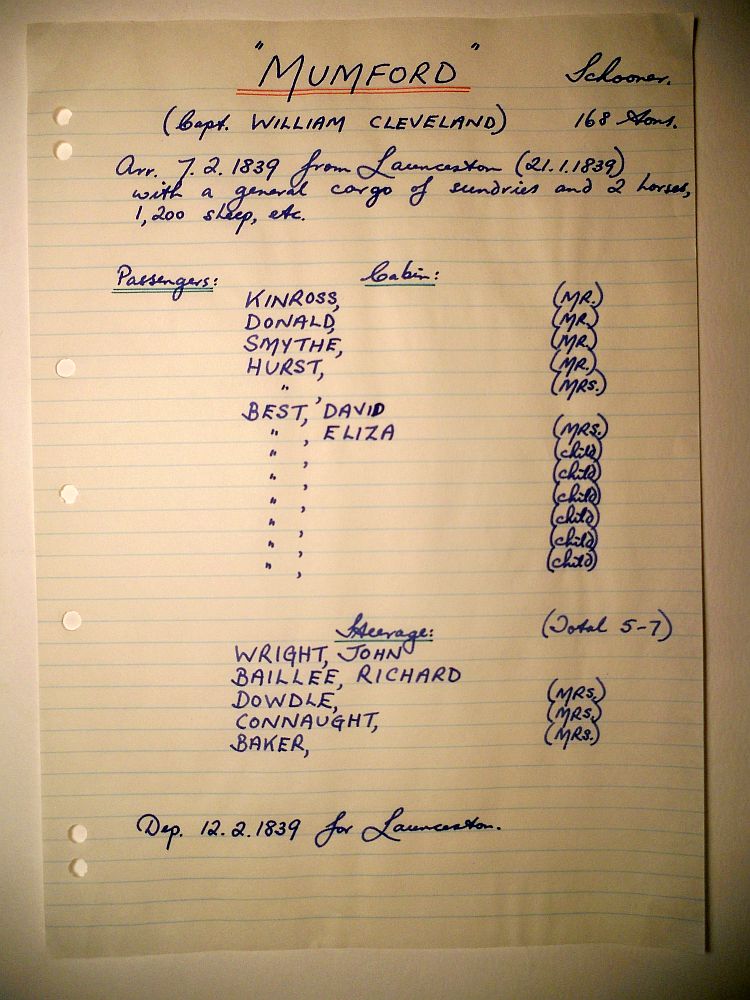 "MUMFORD" Schooner.
(Capt. WILLIAM CLEVELAND) 168 tons.
Arr. 7.2.1839 from Launceston (21.1.1839)
with a general cargo of sundries and 2 horses,
1,200 sheep, etc.
Passengers: Cabin:
KINROSS, (MR.)
DONALD, (MR.)
SMYTHE, (MR.)
HURST, (MR.)
" , (MRS.)
BEST, DAVID
" , ELIZA (MRS.)
" , (child)
" , (child)
" , (child)
" , (child)
" , (child)
" , (child)
Steerage: (Total 5-7)
WRIGHT, JOHN
BAILLEE, RICHARD
DOWDLE, (MRS.)
CONNAUGHT, (MRS.)
BAKER, (MRS.)
Dep. 12.2.1839 for Launceston.